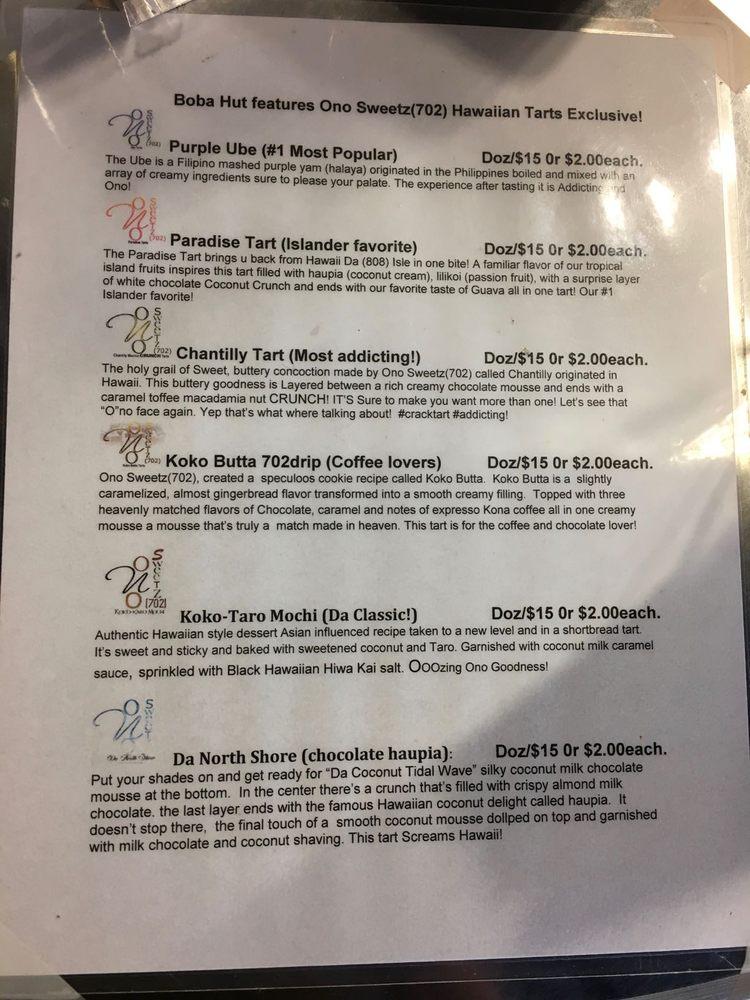 Boba Hut features Ono Sweetz(702) Hawaiian Tarts Exclusive!
Purple Ube (#1 Most Popular) Doz/$15 0r $2.00each.
The Ube is a Filipino mashed purple yam (halaya) originated in the Philippines boiled and mixed with an
array of creamy ingredients sure to please your palate. The experience after tasting it is Addicting and
Ono!
Paradise Tart (Islander favorite) Doz/$15 0r $2.00each.
The Paradise Tart brings u back from Hawaii Da (808) Isle in one bite! A familiar flavor of our tropical
island fruits inspires this tart filled with haupia (coconut cream), lilikoi (passion fruit), with a surprise layer
of white chocolate Coconut Crunch and ends with our favorite taste of Guava all in one tart! Our #1
Islander favorite!
Chantilly Tart (Most addicting!) Doz/$15 0r $2.00each.
The holy grail of Sweet, buttery concoction made by Ono Sweetz(702) called Chantilly originated in
Hawaii. This buttery goodness is Layered between a rich creamy chocolate mousse and ends with a
caramel toffee macadamia nut CRUNCH! IT'S Sure to make you want more than one! Let's see that
"O"no face again. Yep that's what where talking about! #cracktart #addicting!
Koko Butta 702drip (Coffee lovers) Doz/$15 0r $2.00each.
Ono Sweetz(702), created a speculoos cookie recipe called Koko Butta. Koko Butta is a slightly
caramelized, almost gingerbread flavor transformed into a smooth creamy filling. Topped with three
heavenly matched flavors of Chocolate, caramel and notes of expresso Kona coffee all in one creamy
mousse a mousse that's truly a match made in heaven. This tart is for the coffee and chocolate lover!
ONO SWEETZ (702)
Koko-Taro Mochi (Da Classic!) Doz/$15 0r $2.00each.
Authentic Hawaiian style dessert Asian influenced recipe taken to a new level and in a shortbread tart.
It's sweet and sticky and baked with sweetened coconut and Taro. Garnished with coconut milk caramel
sauce, sprinkled with Black Hawaiian Hiwa Kai salt. OOOzing Ono Goodness!
Da North Shore (chocolate haupia): Doz/$15 0r $2.00each.
Put your shades on and get ready for "Da Coconut Tidal Wave" silky coconut milk chocolate
mousse at the bottom. In the center there's a crunch that's filled with crispy almond milk
chocolate. the last layer ends with the famous Hawaiian coconut delight called haupia. It
doesn't stop there, the final touch of a smooth coconut mousse dollped on top and garnished
with milk chocolate and coconut shaving. This tart Screams Hawaii!